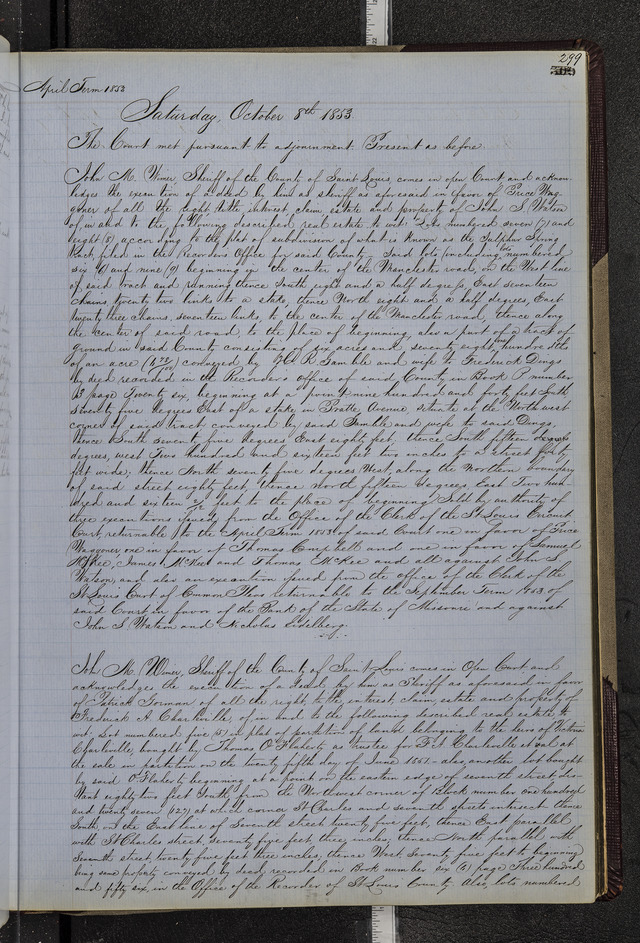 299
April Term 1853
Saturday, October 8th 1853
The Court met pursuant to adjournment. Present as before.
John M. Wimer, Sheriff of the County of Saint Louis, comes in open Court and acknow-
ledges the execution of a deed by him as sheriff as aforesaid in favor of Price Wag-
oner of all the right, title, interest, claim, estate and property of John S. Watson
of, in and to the following described real estate to wit: Lots numbered seven (7) and
eight (8) according to the plat of subdivision of what is known as the Sulphur Spring
tract, filed in the Recorders Office for said County. Said lots (including numbered
six (6) and nine (9) beginning in the center of the Manchester road, on the West line
of said tract and running thence South eight and a half degrees, East seventeen
chains, twenty two links to a stake, thence North eight and a half degrees, East
twenty three chains, seventeen links, to the center of the Manchester road, thence along
the center of said road, to the place of beginning, also a part of a tract of
ground in said County consisting of six acres and seventy eight hundredths
of an acre conveyed by R Gamble and wife to Frederick Dings
by deed recorded in the Recorder's office of said County in Book P number
3 page Twenty six, beginning at a point nine hundred and forty feet South
seventy five degrees East of a stake in Pratte Avenue, situate at the North west
corner of said tract conveyed by said Gamble and wife to said Dings,
thence South seventy five degrees East eighty feet, thence South fifteen degrees
degrees, west Two hundred and sixteen feet two inches to a street forty
feet wide; thence North seventy five degrees West, along the Northern boundary
of said street eighty feet, thence north fifteen degrees East Two hun-
dred and sixteen 2/12 feet to the place of beginning. Sold by authority of
three executions issued from the Office of the Clerk of the St Louis Circuit
Court, returnable to the April Term 1853 of said Court one in favor of Price
Waggoner one in favor of Thomas Campbell and one in favor of Samuel
McKee, James McKee and Thomas McKee and all against John S.
Watson, and also an execution issued from the office of the Clerk of the
St. Louis Court of Common Pleas returnable to the September Term 1853 of
said Court in favor of the Bank of the State of Missouri and against
John S. Watson and Nicholas
John M. Wimer, Sheriff of the County of Saint Louis comes in Open Court and
acknowledges the execution of a deed by him as Sheriff as aforesaid in favor
of Patrick Gorman of all the right, title, interest, claim, estate and property of
Frederick A Charleville, of in and to the following described real estate to
wit. Lot numbered five (5) in plat of partition of land belonging to the heirs of Victoire
Charleville, bought by Thomas O'Flaherty as trustee for F. A. Charleville et al at
the sale in partition on the twenty fifth day of June 1851. also, another lot bought
by said O'Flaherty beginning at a point on the eastern edge of seventh street, dis-
tant eighty two feet South from the Northwest corner of Block number one hundred
and twenty seven (127) at which corner St Charles and seventh streets intersect thence
South, on the East line of Seventh street twenty five feet, thence East parallel
with St Charles street, seventy five feet three inches, thence North parallel with
Seventh street, twenty five feet three inches, thence West, seventy five feet to beginning
being same property conveyed by deed recorded in Book number six (6) page Three hundred
and fifty six, in the Office of the Recorder of St Louis County. Also, lots numbered